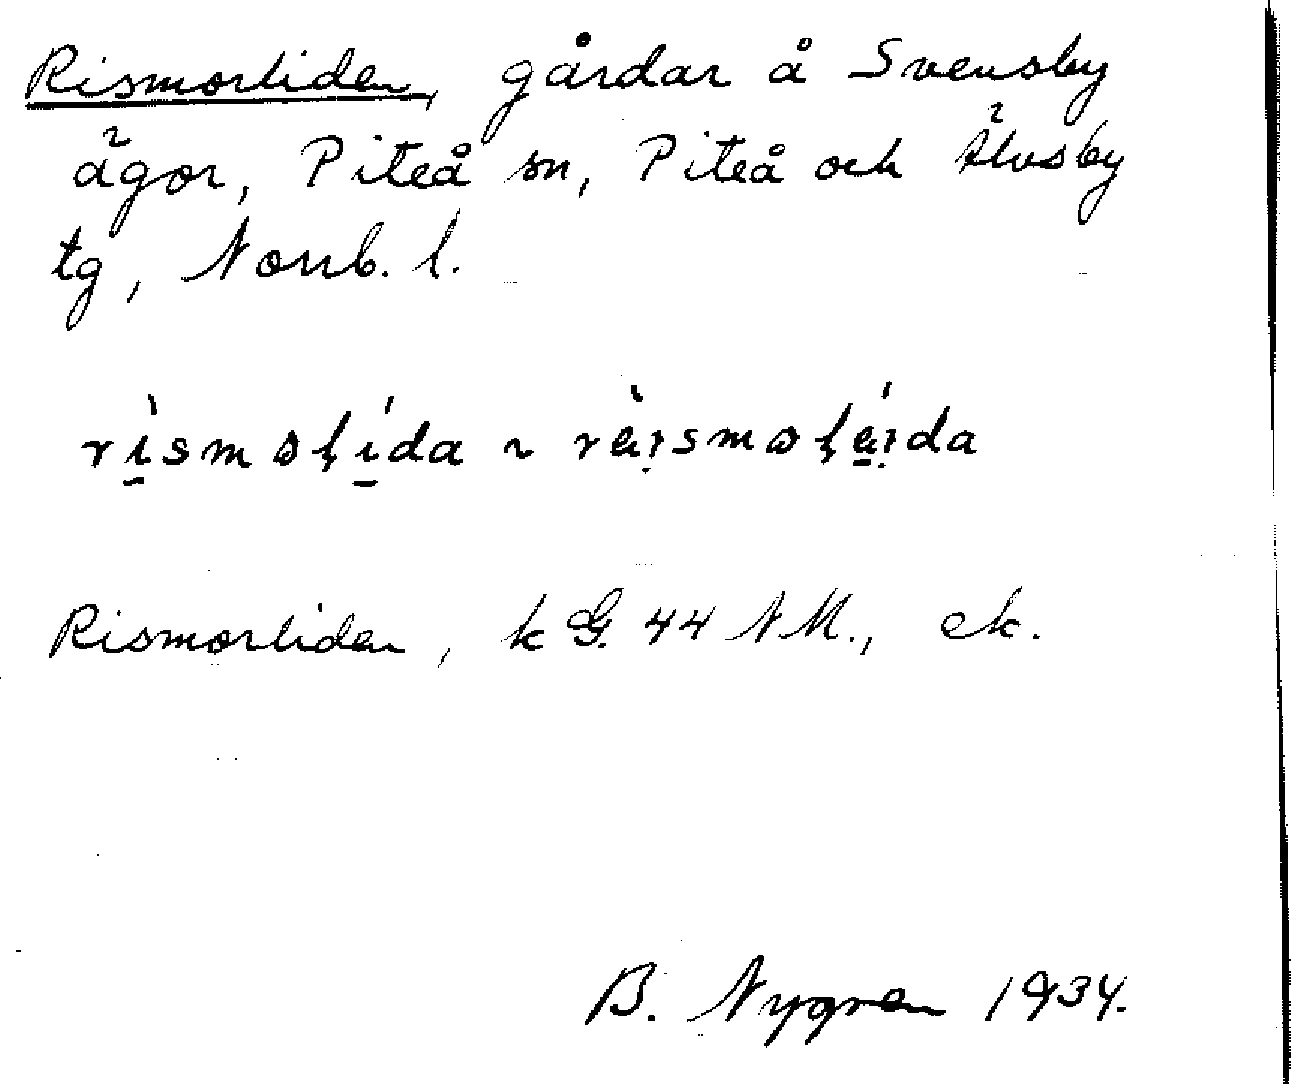 Rismorliden, gårdar å Svensby
ägor, Piteå sn, Piteå och Älvsby
tg, Norrb. l.
rìsmoḷída ~ rèi̯smoḷéi̯da
Rismorliden, k G. 44 NM., ek.
B. Nygren 1934.